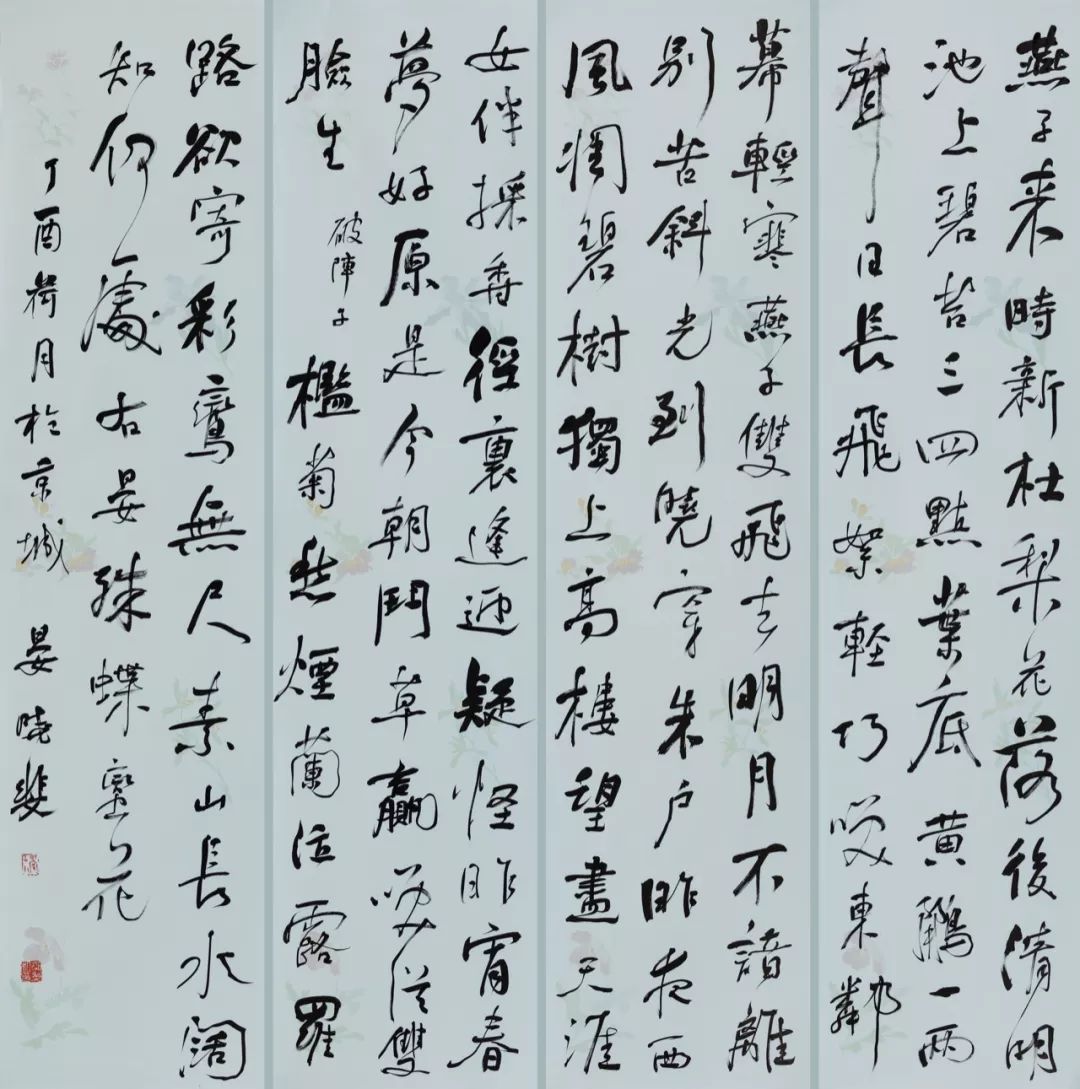 燕子来時新社梨花落後清明
池上碧苔三四點葉底黄鸝一兩
聲日長飛絮輕巧咲東鄰
幕輕寒燕子雙飛去明月不諳離
別苦斜光到曉穿朱户昨夜西
風凋碧樹獨上高樓望盡天涯
女伴採桑徑裏逢迎疑怪昨宵春
夢好原是今朝鬥草贏咲從雙
臉生 破陣子 檻菊愁煙蘭泣露羅
路欲寄彩鸞無尺素山長水闊
知何處右晏殊蝶戀花
丁酉荷月於京城晏曉斐